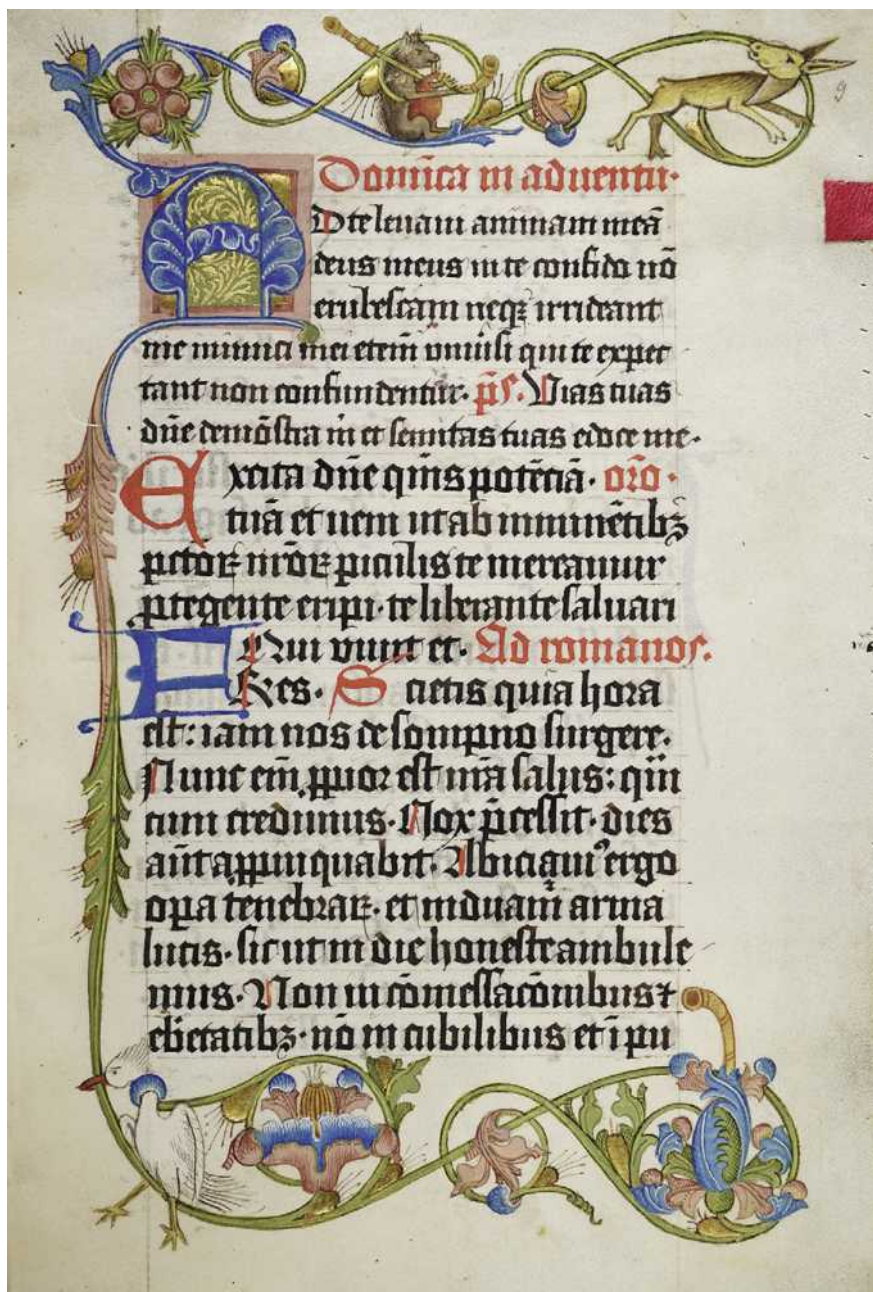 9
Domīca in aduentu·
AD te leuaui animam meā
deus meus in te confido nō
erubescam neqꝫ irrideant
me inimici mei etem̄ vniu͛si qui te expec
tant non confundentur· p̄s. Vias tuas
dn̄e demōstra m̄ et semitas tuas edoce me·
Excita dn̄e qm̄s potēciā· orō·
tuā et ueni ut ab imminētibꝫ
pctōꝝ nr̄oꝝ piculis te mereamur
ꝓtegente eripi· te liberante saluari
Qui viuit et· Ad romanos.
FRes· Scietis quia hora
est: iam nos de sompno surgere·
Nunc em̄ ꝓpior est nr̄a salus: qm̄
cum credimus· Nox p̄cessit· dies
aūt appinquabit· Abiciamꝰ ergo
opa tenebraꝝ· et induam̄ arma
lucis· sic ut in die honeste ambule
mus· Non in cōmessacōnibus ⁊
ebrietatibꝫ· nō in cubilibus et ī pu